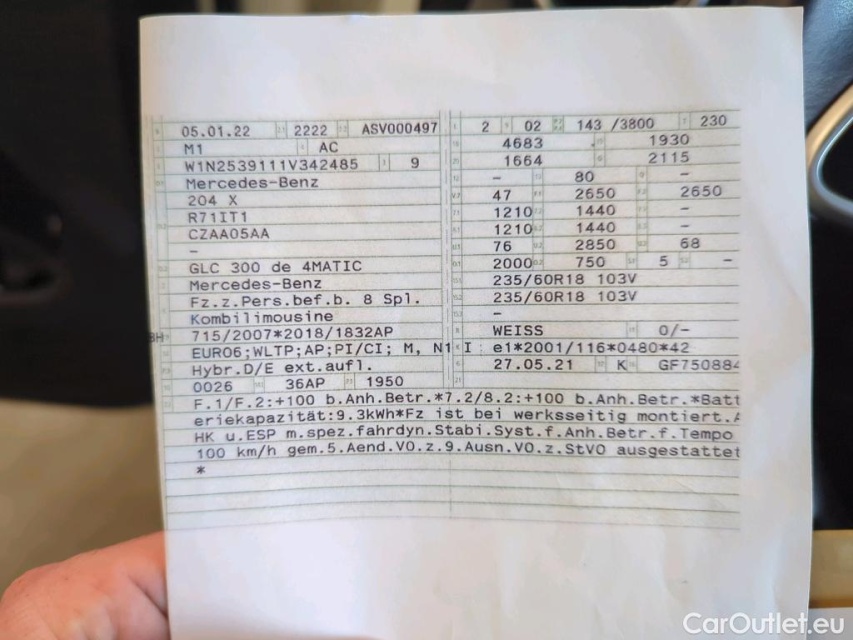 05.01.22 2222 ASV000497
M1 AC
W1N2539111V342485 9
Mercedes-Benz
204 X
R71IT1
CZAA05AA
-
GLC 300 de 4MATIC
Mercedes-Benz
Fz.z.Pers.bef.b. 8 Spl.
Kombilimousine
715/2007*2018/1832AP
EURO6;WLTP;AP;PI/CI; M, N1 I
Hybr.D/E ext.aufl.
0026 36AP 1950
2 02 143 /3800 230
4683 1930
1664 2115
- 80 -
47 2650 2650
1210 1440 -
1210 1440 -
76 2850 68
2000 750 5 -
235/60R18 103V
235/60R18 103V
-
WEISS 0/-
e1*2001/116*0480*42
27.05.21 K GF750884
F.1/F.2:+100 b.Anh.Betr.*7.2/8.2:+100 b.Anh.Betr.*Batt
eriekapazität:9.3kWh*Fz ist bei werksseitig montiert.A
HK u.ESP m.spez.fahrdyn.Stabi.Syst.f.Anh.Betr.f.Tempo
100 km/h gem.5.Aend.VO.z.9.Ausn.VO.z.StVO ausgestattet
*
CarOutlet.eu